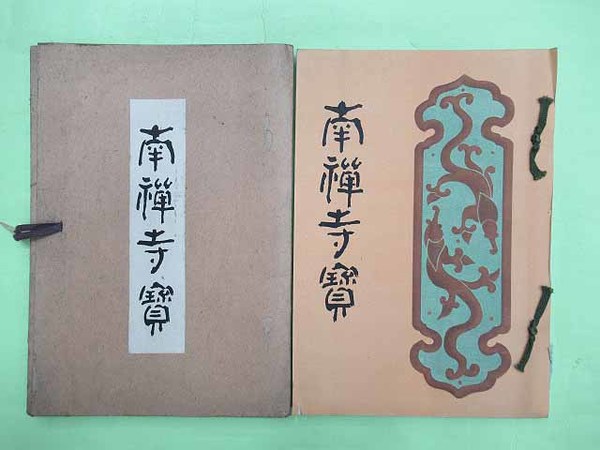 南禪寺寶
南禪寺寶